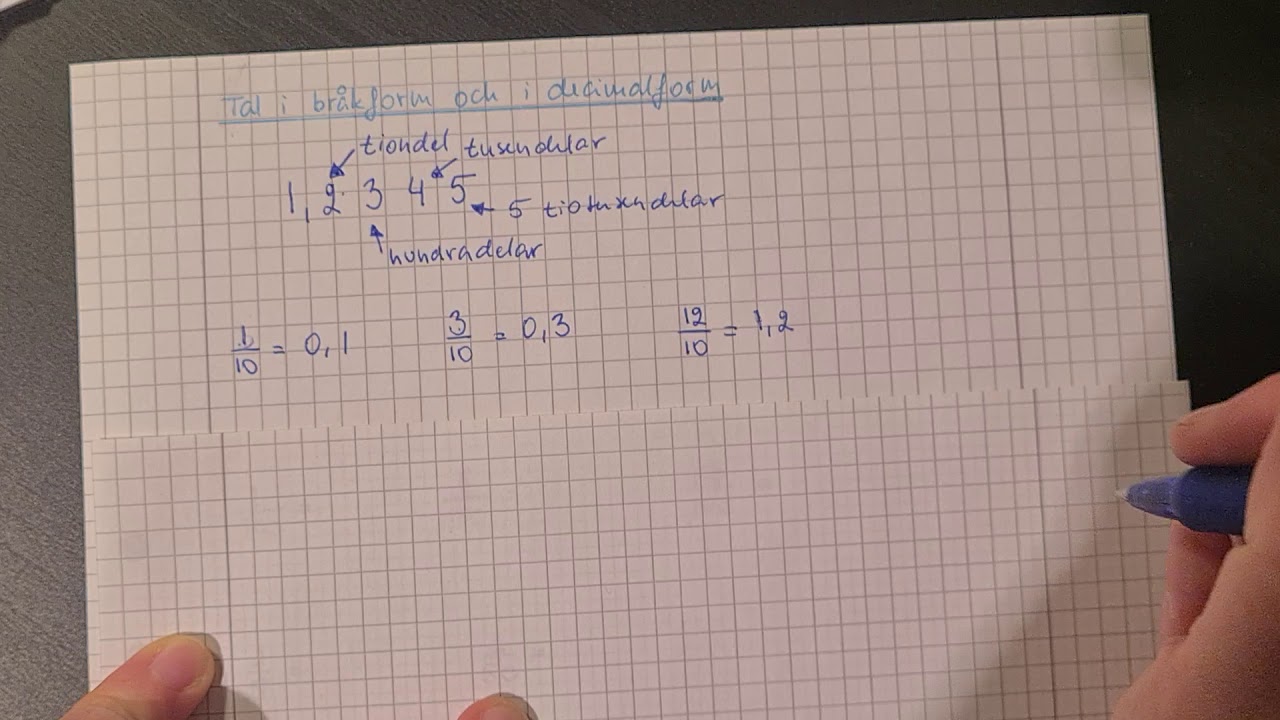 Tal i bråkform och i decimalform
tiondel tusendelar
1,2 3 4 5
5 tiotusendelar
hundradelar
1/10 = 0,1 3/10 = 0,3 12/10 = 1,2